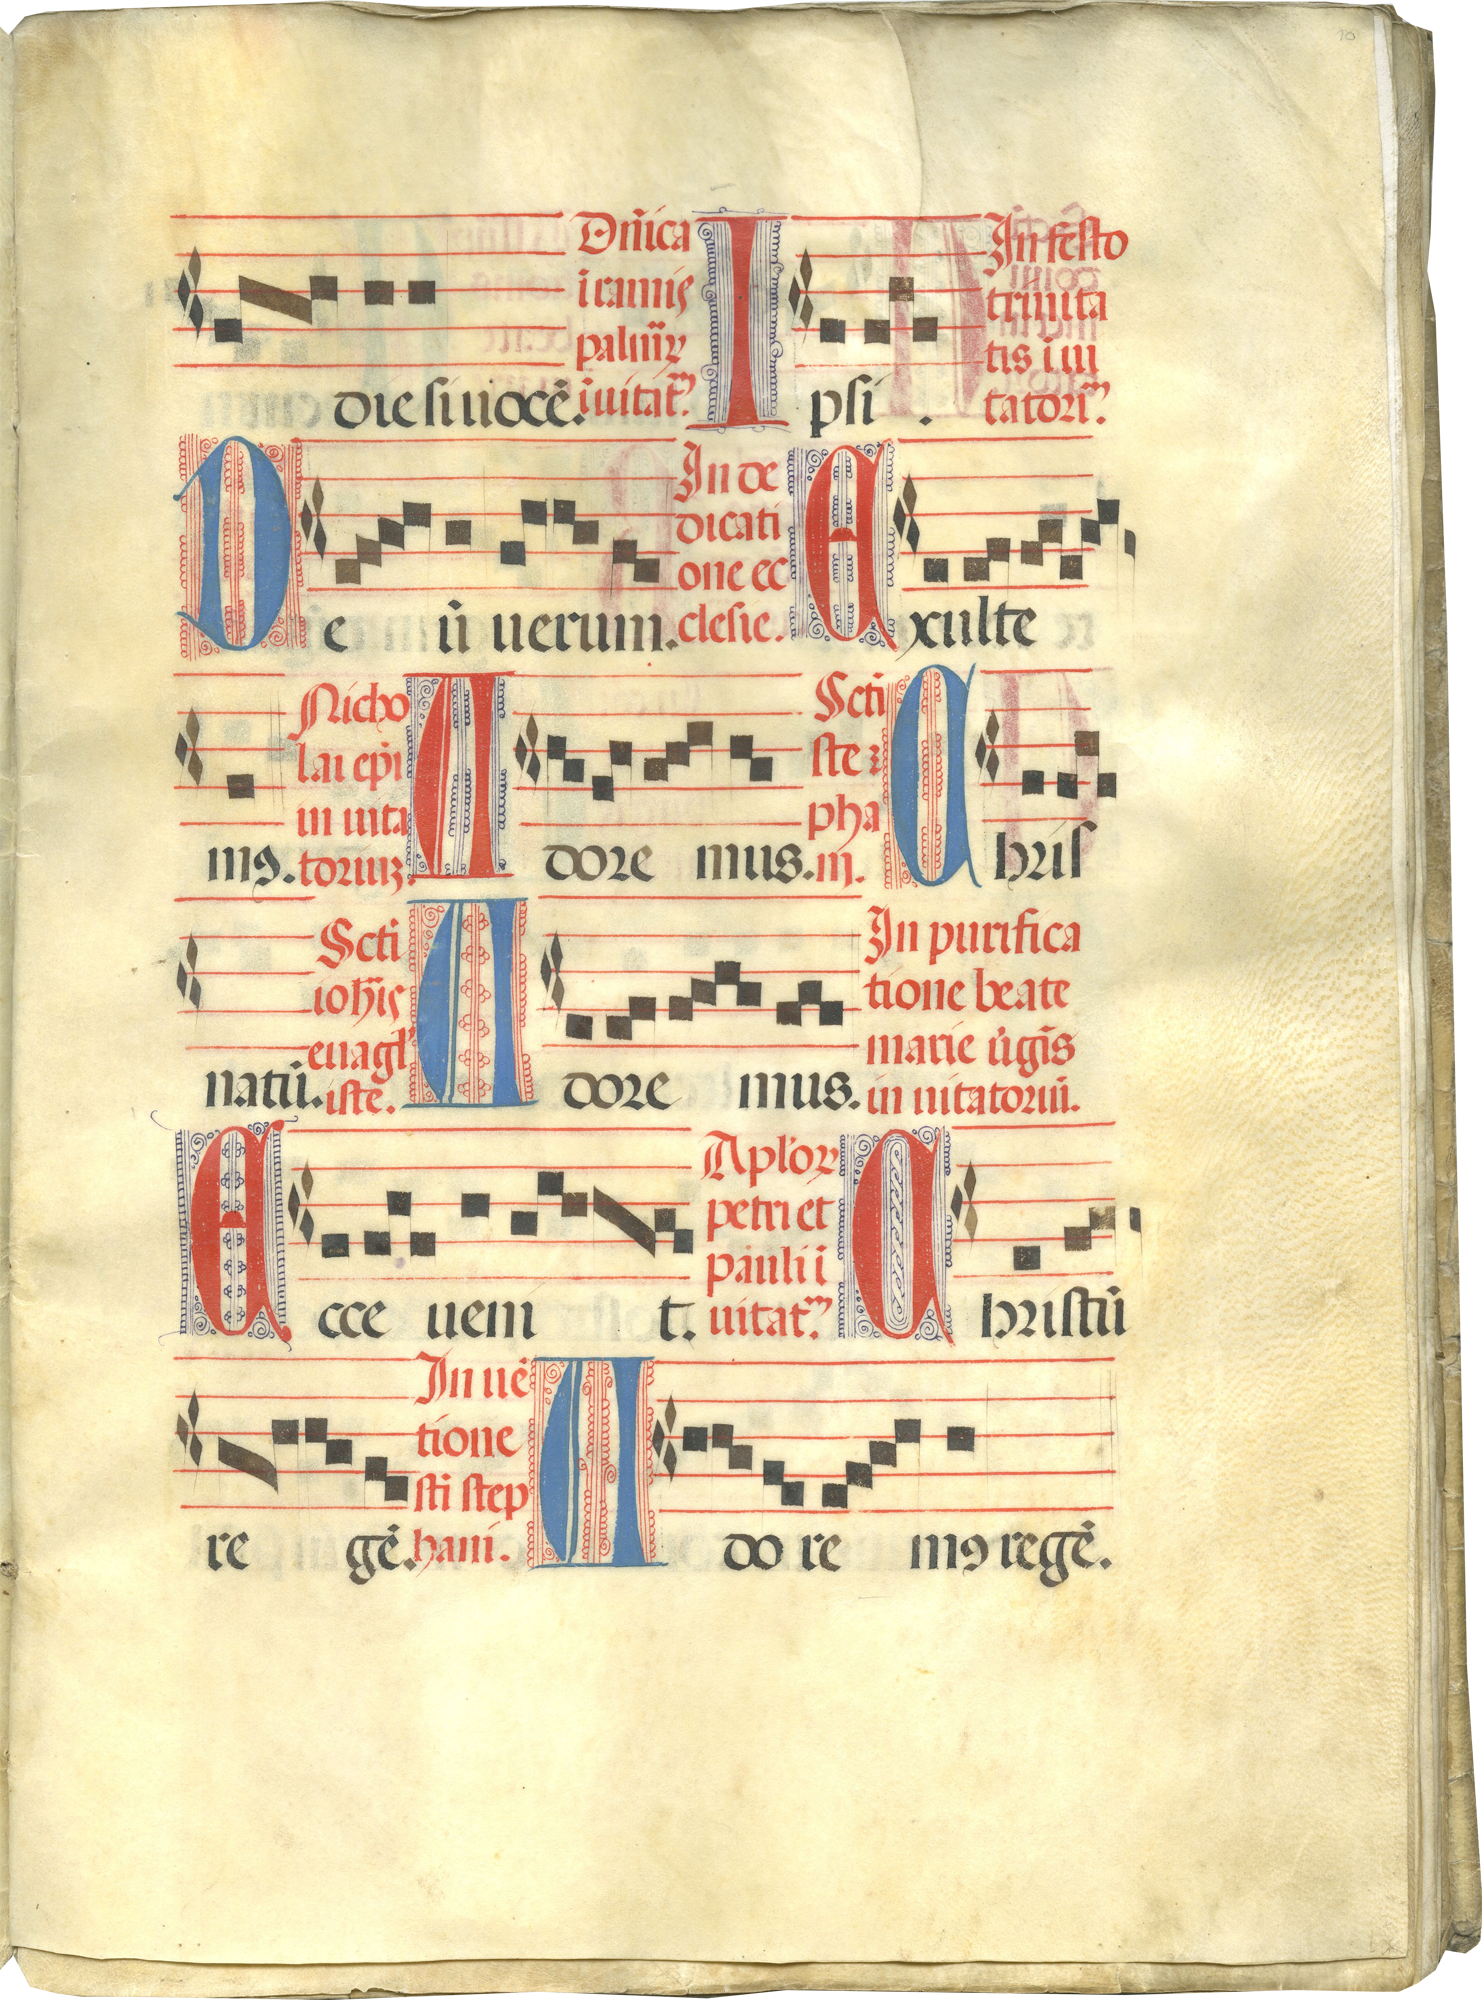 10
Dñica
i ramis
palmaꝝ
die si uocē. ĩuitat.ᵐ I psi .
In festo
trinita
tis i ui
tatori.ᵐ
D e ũ uerum.
In de
dicati
one ec
clesie. E xulte
mꝰ.
Nicho
lai epi
in uita
toriuꝫ. A dore mus.
Scti
ste
pha
ni. C hris
natũ.
Scti
ioħis
euãgl
iste. A dore mus.
In purifica
tione beate
marie ũgĩs
in uitatoriũ.
E cce ueni t.
Aploꝝ
petri et
pauli i
uitat.ᵐ C hristũ
re gē.
In uē
tione
sti step
hani. A do re mꝰ regē.